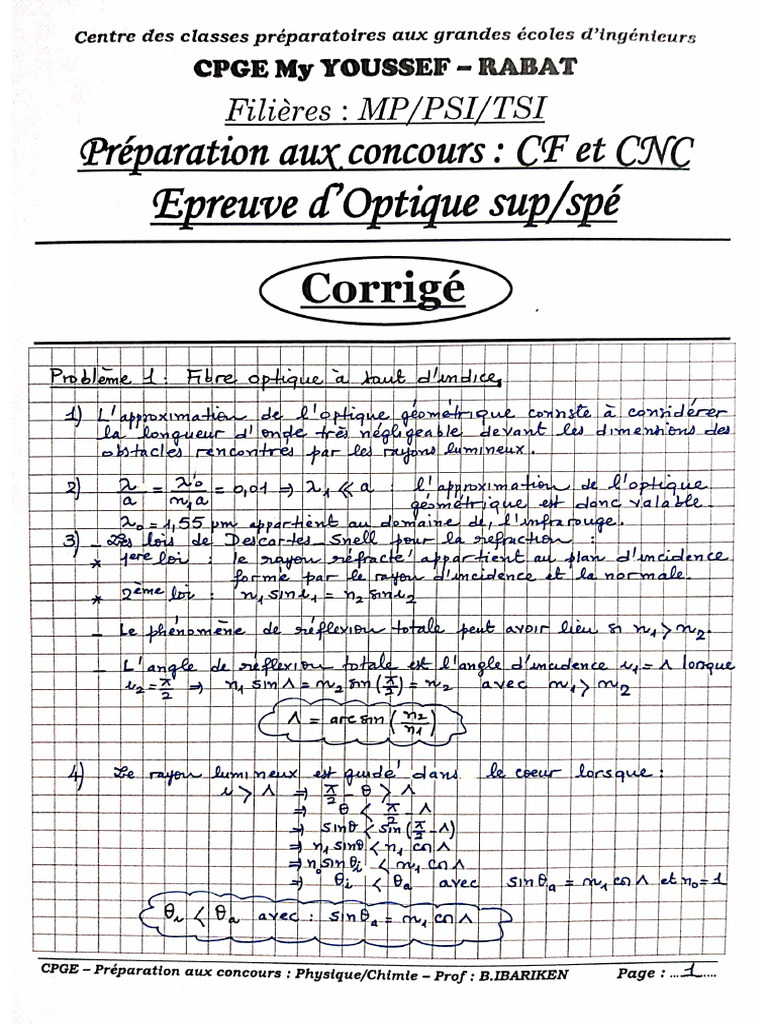 Centre des classes préparatoires aux grandes écoles d'ingénieurs
CPGE My YOUSSEF – RABAT
Filières : MP/PSI/TSI
Préparation aux concours : CF et CNC
Epreuve d'Optique sup/spé
Corrigé
Problème 1 : Fibre optique à saut d'indice.
1) L'approximation de l'optique géométrique consiste à considérer
la longueur d'onde très négligeable devant les dimensions des
obstacles rencontrés par les rayons lumineux.
2) λ/a = λ₀/n₁a = 0,01 ⇒ λ₁ ≪ a : l'approximation de l'optique
géométrique est donc valable.
λ₀ = 1,55 μm appartient au domaine de l'infrarouge.
3) – Les lois de Descartes Snell pour la réfraction :
* 1ère loi : le rayon réfracté appartient au plan d'incidence
formé par le rayon d'incidence et la normale.
* 2ème loi : n₁ sin i₁ = n₂ sin i₂
– Le phénomène de réflexion totale peut avoir lieu si n₁ > n₂.
– L'angle de réflexion totale est l'angle d'incidence i₁ = Λ lorsque
i₂ = π/2 ⇒ n₁ sin Λ = n₂ sin(π/2) = n₂ avec n₁ > n₂
Λ = arcsin(n₂/n₁)
4) Le rayon lumineux est guidé dans le coeur lorsque :
i > Λ ⇒ π/2 – θ > Λ
⇒ θ < π/2 – Λ
⇒ sinθ < sin(π/2 – Λ)
⇒ n₁ sinθ < n₁ cos Λ
⇒ n₀ sin θi < n₁ cos Λ
⇒ θi < θa avec sinθa = n₁ cos Λ et n₀ = 1
θi < θa avec : sinθa = n₁ cos Λ
CPGE – Préparation aux concours : Physique/Chimie – Prof : B.IBARIKEN Page : ...1....